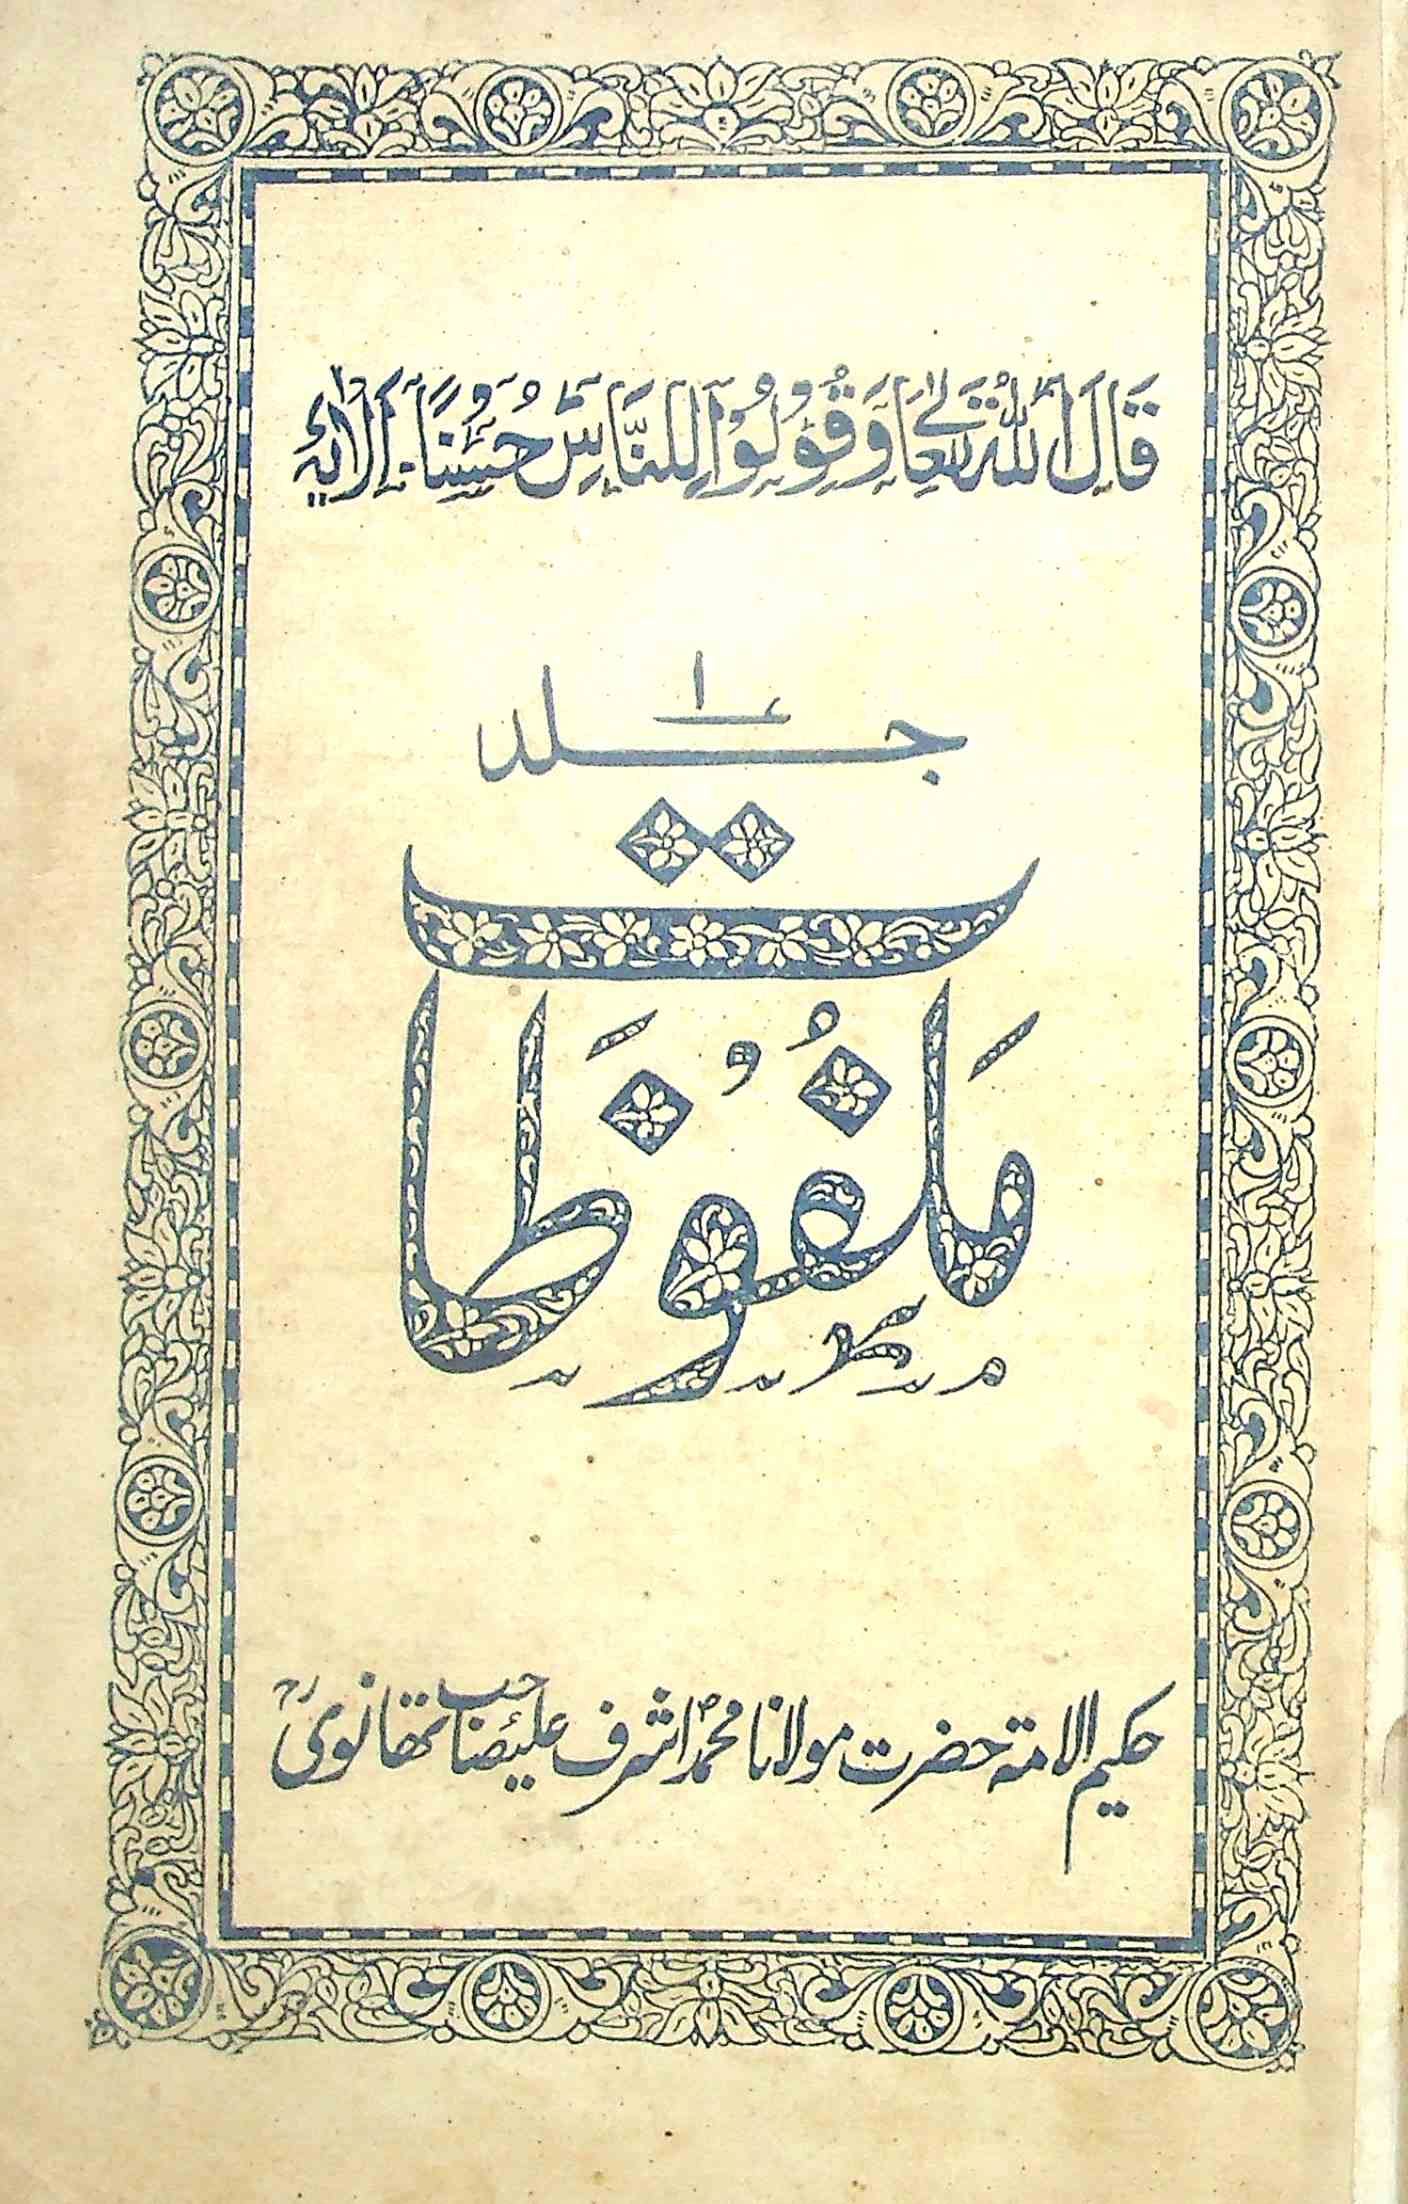 قَالَ اللّٰهُ تَعَالٰی وَقُوْلُوْا لِلنَّاسِ حُسْنًا۔ اَلْاٰیَہ
جلد ۱
مَلْفُوْظَات
حکیم الامۃ حضرت مولانا محمد اشرف علی صاحب تھانوی رح